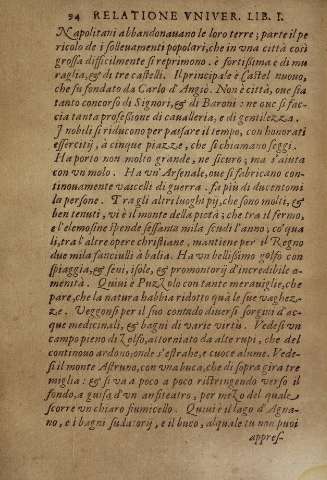 94 RELATIONE VNIVER. LIB. I.
Napolitani abbandonauano le loro terre; parte il pe
ricolo de i solleuamenti popolari, che in vna città così
grossa difficilmente si reprimono. è fortissima e di mu
raglia, & di tre castelli. Il principale è Castel nuouo,
che fu fondato da Carlo d'Angiò. Non è città, oue sia
tanto concorso di Signori, & di Baroni: ne oue si fac-
cia tanta professione di caualleria, e di gentilezza.
I nobili si riducono per passare il tempo, con honorati
essercitij, à cinque piazze, che si chiamano seggi.
Ha porto non molto grande, ne sicuro; ma s'aiuta
con vn molo. Ha vn'Arsenale, oue si fabricano con
tinouamente vascelli di guerra. fa più di ducentomi
la persone. Tra gli altri luoghi pij, che sono molti, &
ben tenuti, vi è il monte della pietà; che tra il fermo,
e l'elemosine spende sessanta mila scudi l'anno; co' qua
li, tra l'altre opere christiane, mantiene per il Regno
due mila fanciulli à balia. Ha vn bellissimo golfo con
spiaggia, & seni, isole, & promontorij d'incredibile a-
menità. Quiui è Puzzolo con tante merauiglie, che
pare, che la natura habbia ridotto quà le sue vaghez-
ze. Veggonsi per il suo contado diuersi sorgiui d'ac-
que medicinali, & bagni di varie virtù. Vedesi vn
campo pieno di Zolfo, attorniato da alte rupi, che del
continouo ardono; onde s'estrahe, e cuoce alume. Vede-
si il monte Astruno, con vna buca, che di sopra gira tre
miglia: & si va a poco a poco ristringendo verso il
fondo, a guisa d'vn anfiteatro, per mezo del quale
scorre vn chiaro fiumicello. Quiui è il lago d'Agna-
no, e i bagni sudatorij, e il buco, al quale tu non puoi
appres-